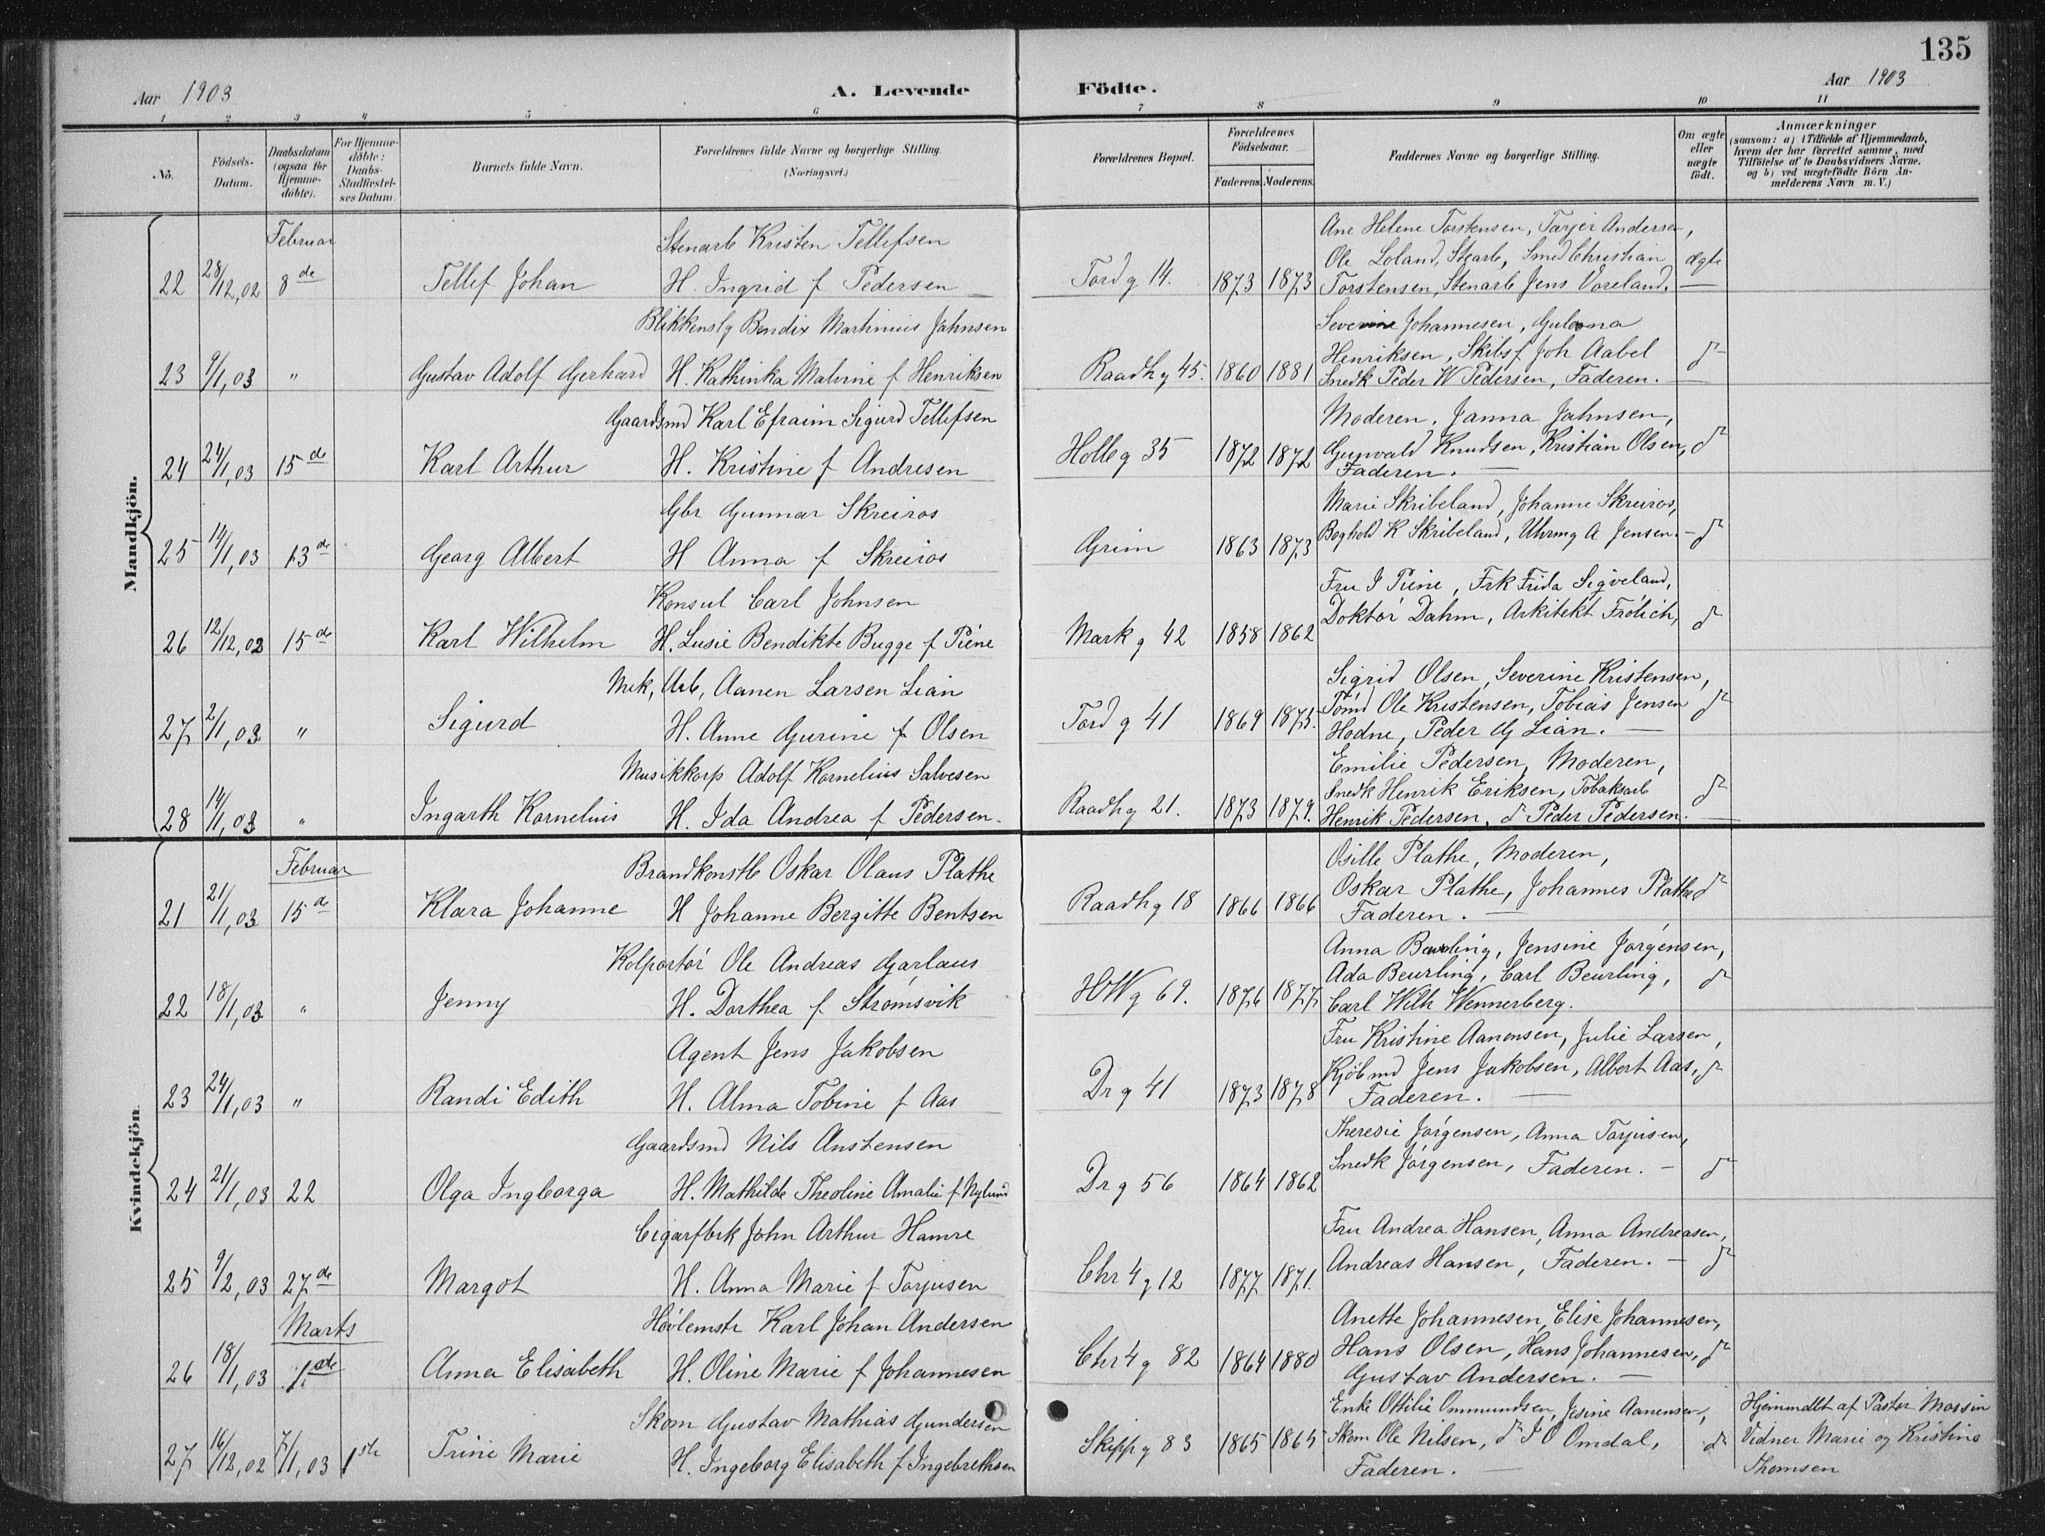 135
Aar 1903 A. Levende Födte. Aar 1903
1 2 3 4 5 6 7 8 9 10 11
No. Födsels-Datum. Daabsdatum (ogsaa for Hjemme-döbte). For Hjemme-döbte: Daabs-Stadfæstel-ses Datum. Barnets fulde Navn. Forældrenes fulde Navne og borgerlige Stilling. (Næringsvei.) Forældrenes Bopæl. Forældrenes Födselsaar. Faderens. Moderens. Faddernes Navne og borgerlige Stilling. Om ægte eller uægte födt. Anmærkninger (saasom: a) i Tilfælde af Hjemmedaab, hvem der har forrettet samme, med Tilföielse af to Daabsvidners Navne. og b) ved uægtefödte Börn An-melderens Navn m. V.)
Mandkjön.
Februar Stenarb Kristen Tellefsen Ane Helene Torstensen, Tarjer Andersen,
Ole Loland, Stearb, Smed Christian ægte
22 28/12,02 8de Tellef Johan H. Ingrid f Pedersen Tord g 14. 1873 1873 Torstensen, Stenarb Jens Voreland.
Blikkenslg Bendix Martinius Jahnsen Severine Johannesen, Gulona
Henriksen, Skibsf Joh Aabel
23 9/1,03 " Gustav Adolf Gerhard H. Kathinka Malvine f Henriksen Raadh g 45. 1860 1881 Snedk Peder W Pedersen, Faderen. do
Gaardsmd Karl Efraim Sigurd Tellefsen Moderen, Janna Jahnsen,
24 24/1,03 15de Karl Arthur H. Kristine f Andresen Holb g 35 1872 1872 Gunvald Knudsen, Kristian Olsen, do
Faderen.
Gbr Gunnar Skreiros Marie Skribeland, Johanne Skreiros,
25 14/1,03 13de Georg Albert H Anna f Skreiros Grim 1863 1873 Boghold K Skribeland, Uhrmg A Jensen. do
Konsul Carl Johnsen Fru I Piene, Frk Frida Sigveland,
26 12/12,02 15de Karl Wilhelm H. Lusie Bendikte Bugge f Piene Mark g 42 1858 1862 Doktor Dahm, Arkitekt Frölich, do
Mek, Arb, Aanen Larsen Lian Sigrid Olsen, Severine Kristensen,
27 2/1,03 " Sigurd H. Anne Gurine f Olsen Tord g 41 1869 1875. Tömd Ole Kristensen, Tobias Jensen do
Hodne, Peder G Lian.
Musikkorp Adolf Kornelius Salvesen Emilie Pedersen, Moderen,
Snedk Henrik Eriksen, Tobaksarb do
28 14/1,03 " Ingarth Kornelius H. Ida Andrea f Pedersen. Raadh g 21. 1873 1879. Henrik Pedersen, do Peder Pedersen.
Kvindekjön.
Februar Brandkonstb Oskar Olaus Plathe Osille Plathe, Moderen,
21 21/1,03 15de Klara Johanne H Johanne Bergitte Bentsen Raadh g 18 1866 1866 Oskar Plathe, Johannes Plathe do
Faderen.
Kolportör Ole Andreas Gjarlaus Anna Beurling, Jensine Jørgensen,
22 18/1,03 " Jenny H. Dorthea f Strømsvik HW g 69. 1876 1877 Ada Beurling, Carl Beurling, do
Carl Wilh Wennerberg.
Agent Jens Jakobsen Fru Kristine Aanonsen, Julie Larsen,
23 24/1,03 " Randi Edith H. Alma Tobine f Aas Dr g 41 1873 1878 Kjöbmd Jens Jakobsen, Albert Aas, do
Faderen.
Gaardsmd Nils Anstensen Theresie Jørgensen, Anna Tarjusen,
24 21/1,03 22 Olga Ingborga H. Mathilde Theoline Amalie f Nylund Dr g 56 1864 1862 Snedk Jørgensen, Faderen. do
Cigarfbrk John Arthur Hamre Fru Andrea Hansen, Anna Andreasen,
25 9/2,03 27de Margot H. Anna Marie f Torjusen Chr 4 g 12 1877 1871. Andreas Hansen, Faderen. do
Marts Hövlemstr Karl Johan Andersen Anette Johannesen, Elise Johannesen,
26 18/1,03 1ste Anna Elisabeth H. Oline Marie f Johannesen Chr 4 g 82 1864 1880 Hans Olsen, Hans Johannesen, do
Gustav Andersen.
Skom Gustav Mathias Gundersen Enke Ottilie Ommundsen, Jesine Aanensen, Hjemmdbt af Pastor Mossin
27 16/12,02 7/1,03 1ste Trine Marie H. Ingeborg Elisabeth f Ingebrethsen Skipp g 83 1865 1865 Skom Ole Nilsen, do I O Omdal, do Vidner Marie og Kristine
Faderen. Thomsen